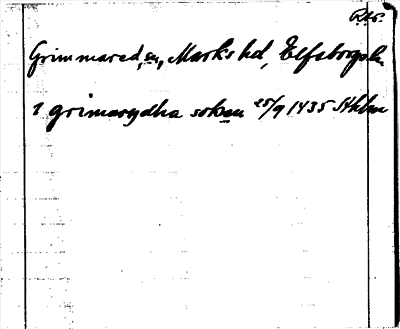 Grimmared, sn, Marks hd, Elfsborgs ln
i grimarydha sokn 25/9 1435 Sthlm